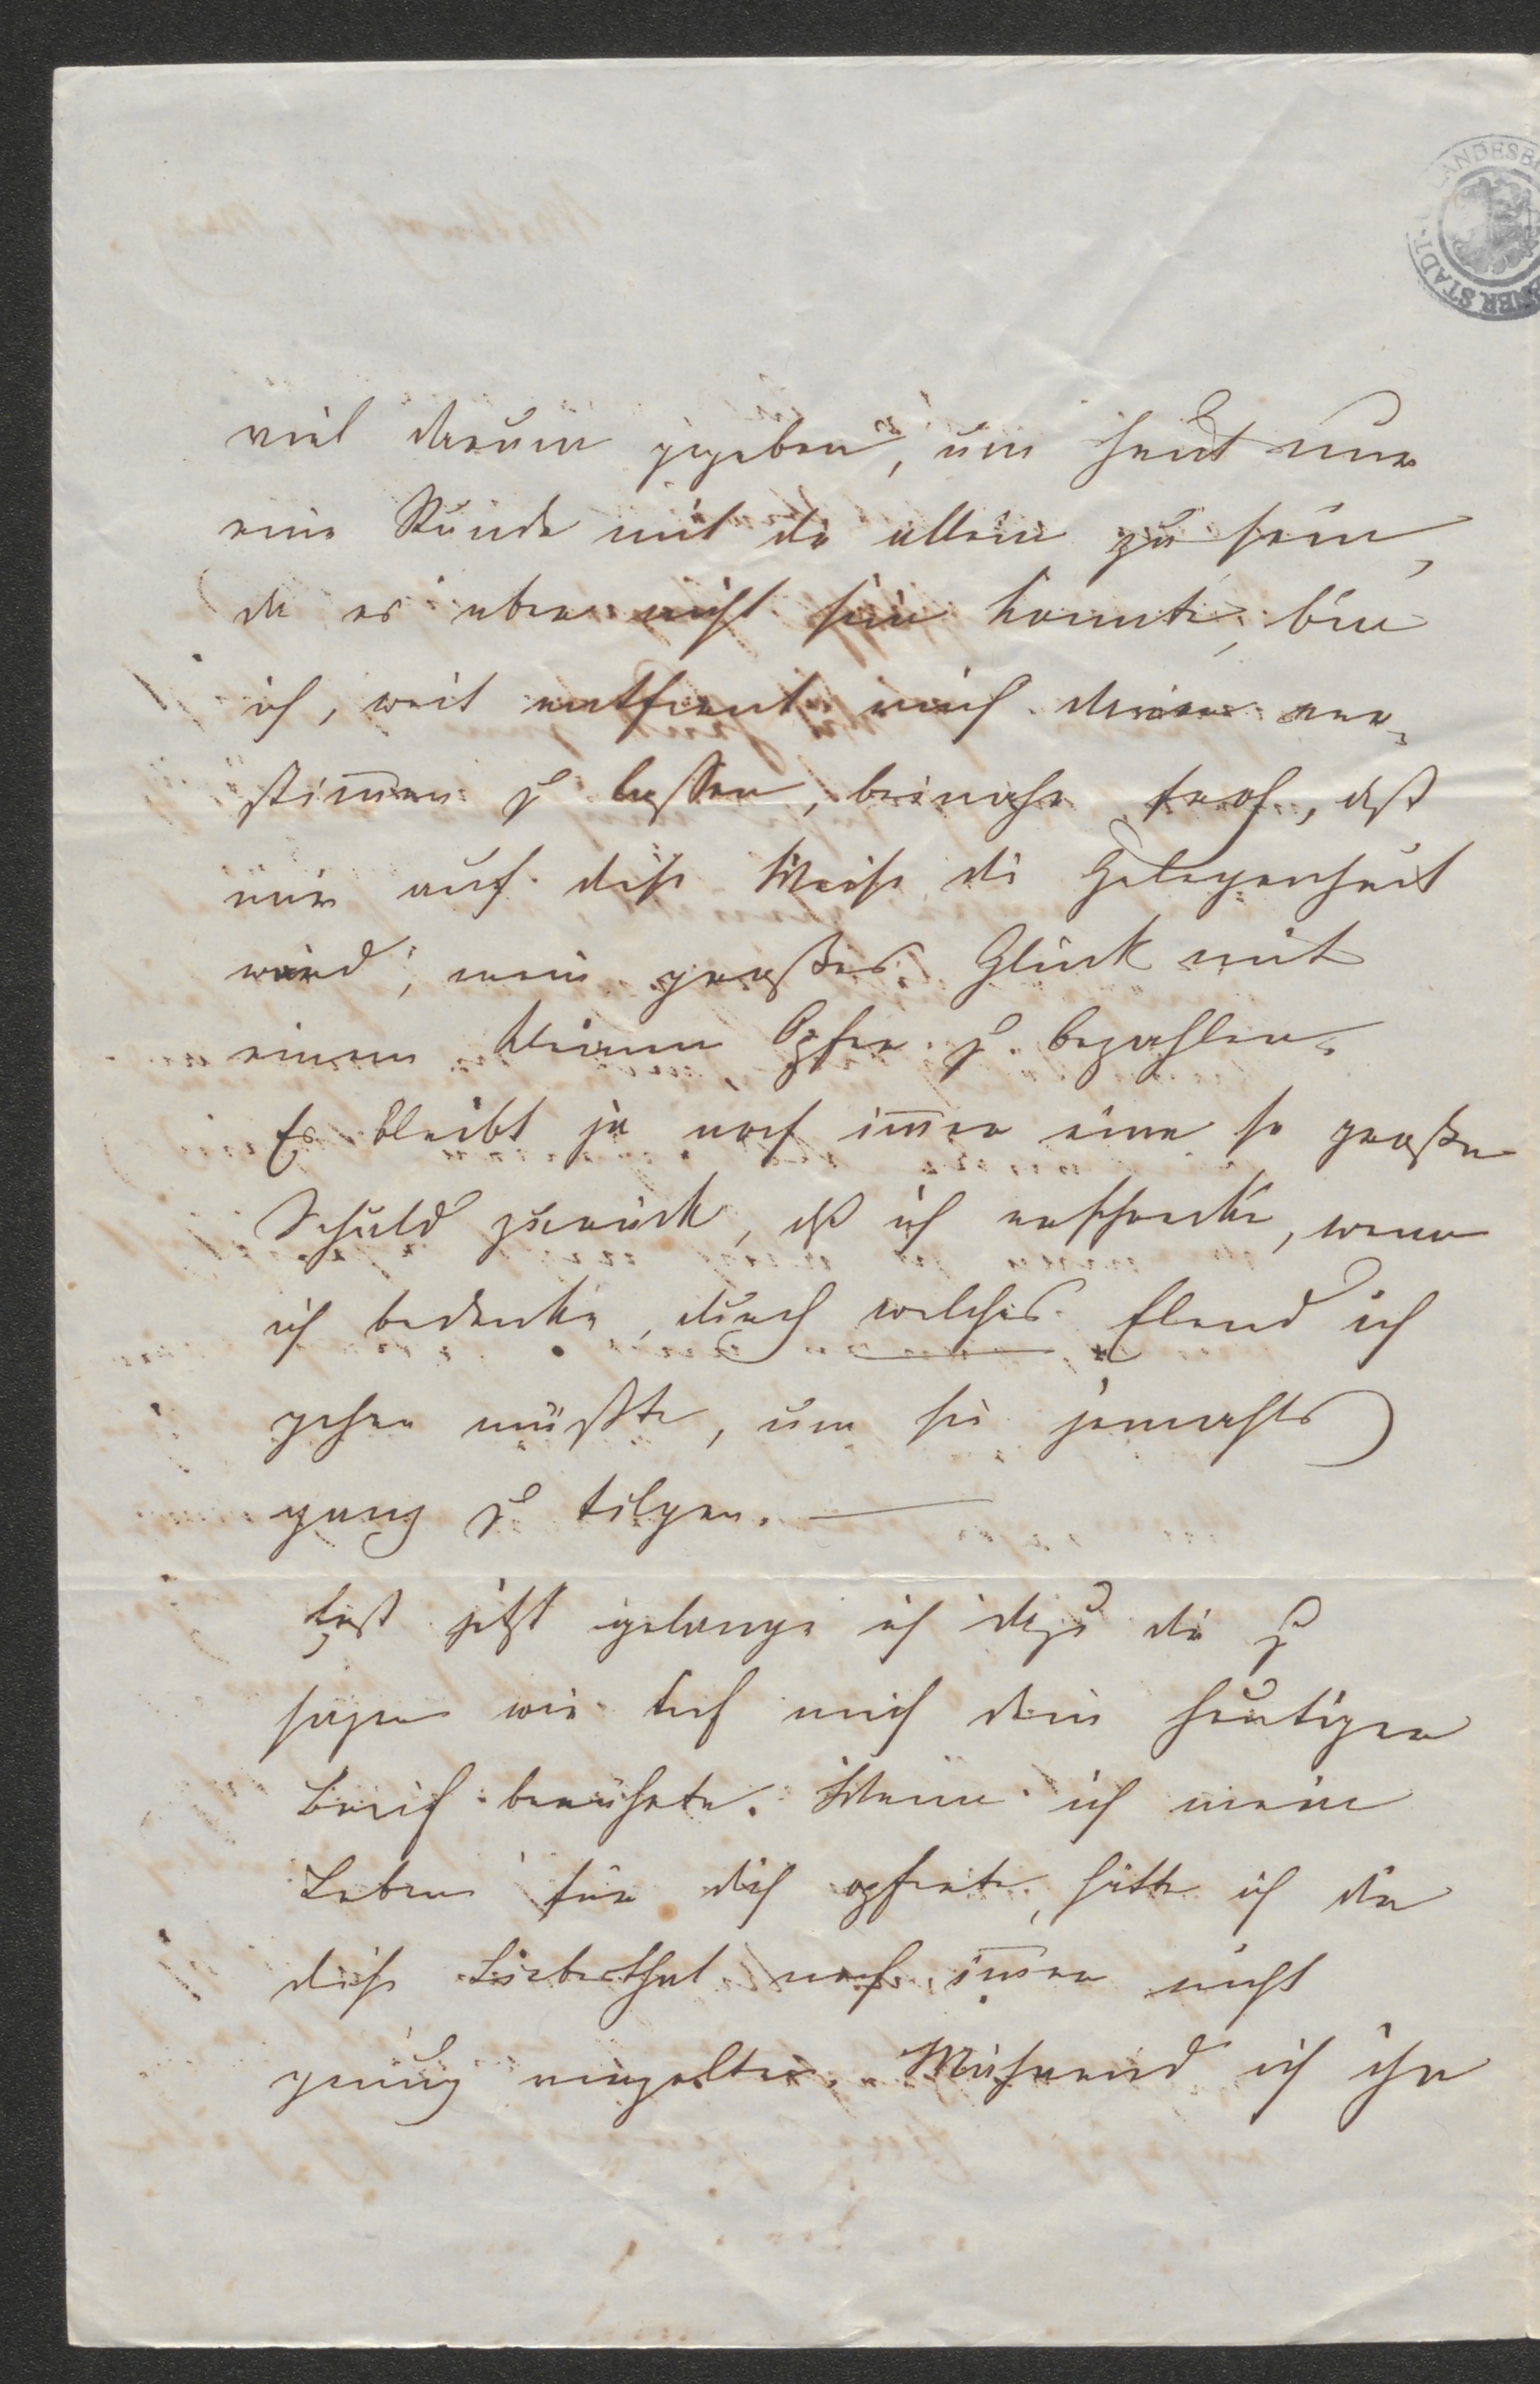 viel darum gegeben, um heut nur
eine Stunde mit dir allein zu sein,
da es aber nicht sein konnte, bin
ich, weit entfernt mich davon ver-
stimen z lassen, beinahe froh, dß
mir auf diese Weise die Gelegenheit
wird, mein großes Glück mit
einem kleinen Opfer z bezahlen.
Es bleibt ja noch imer eine so große
Schuld zurück, dß ich erschrecke, wenn
ich bedenke, durch welches Elend ich
gehen müßte, um sie jemahls
ganz z tilgen. —
Erst jetzt gelange ich dazu dir z
sagen wie tief mich dein heutiger
Brief berührte. Wenn ich mein
Leben für dich opferte, hätte ich dir
diese Liebesthat noch imer nicht
genug vergolten. Während ich ihn
STADT- LANDESB